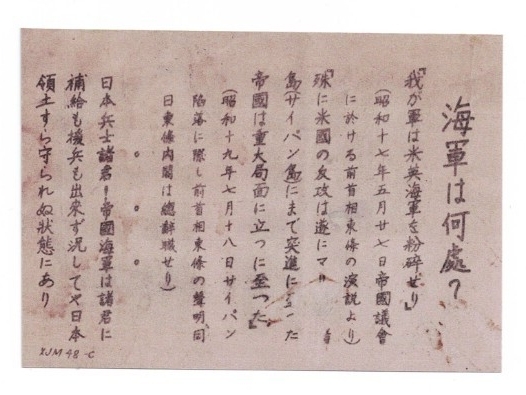 海軍は何處?
『我が軍は米英海軍を粉碎せり』
(昭和十七年五月廿七日帝國議會
に於ける前首相東條の演説より)
『殊に米國の反攻は遂にマリ
島(サイパン島にまで突進
帝國は重大局面に立つに至つた』
(昭和十九年七月十八日サイパン
陷落に際し前首相東條の聲明同
日東條內閣は總辭職せり)
日本兵士諸君!帝國海軍は諸君に
補給も援兵も出來ず況してや日本
領土すら守られぬ狀態にあり
XJM 48-C